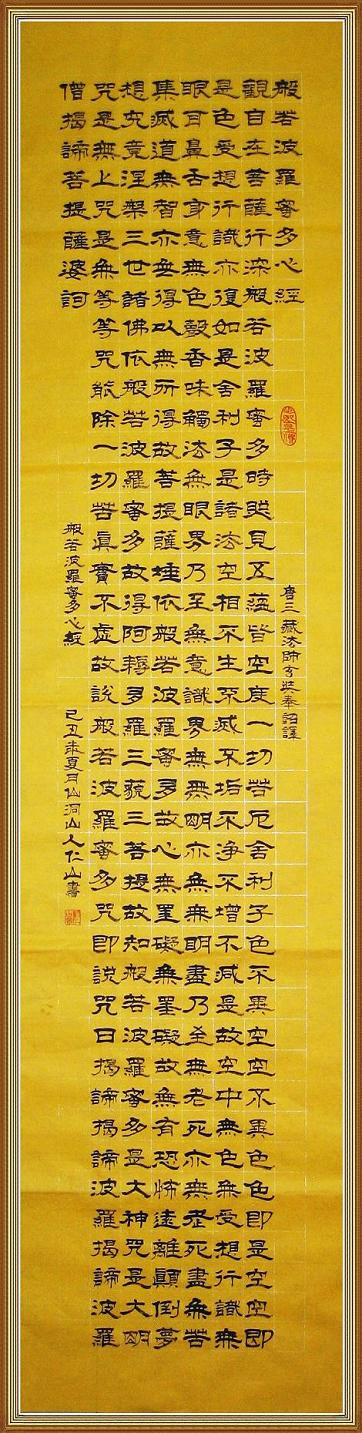 般若波羅蜜多心經
唐三藏法師玄奘奉詔譯
觀自在菩薩行深般若波羅蜜多時照見五蘊皆空度一切苦厄舍利子色不異空空不異色色即是空空即
是色受想行識亦復如是舍利子是諸法空相不生不滅不垢不淨不增不減是故空中無色無受想行識無
眼耳鼻舌身意無色聲香味觸法無眼界乃至無意識界無無明亦無無明盡乃至無老死亦無老死盡無苦
集滅道無智亦無得以無所得故菩提薩埵依般若波羅蜜多故心無罣礙無罣礙故無有恐怖遠離顛倒夢
想究竟涅槃三世諸佛依般若波羅蜜多故得阿耨多羅三藐三菩提故知般若波羅蜜多是大神咒是大明
咒是無上咒是無等等咒能除一切苦眞實不虛故說般若波羅蜜多咒即說咒曰揭諦揭諦波羅揭諦波羅
僧揭諦菩提薩婆訶
般若波羅蜜多心經
己丑年夏月仙洞山人仁山書